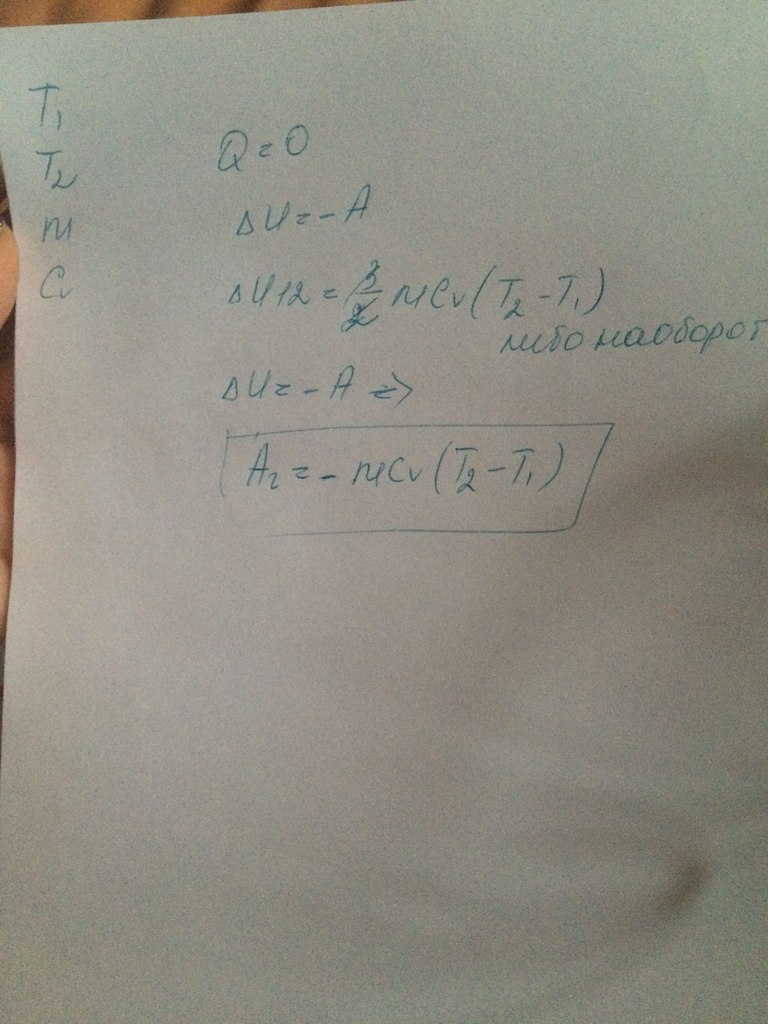 T₁
T₂
m
Cv
Q = 0
ΔU = - A
ΔU12 = mCv(T₂ - T₁)
либо наоборот
ΔU = - A =>
A₂ = - mCv(T₂ - T₁)